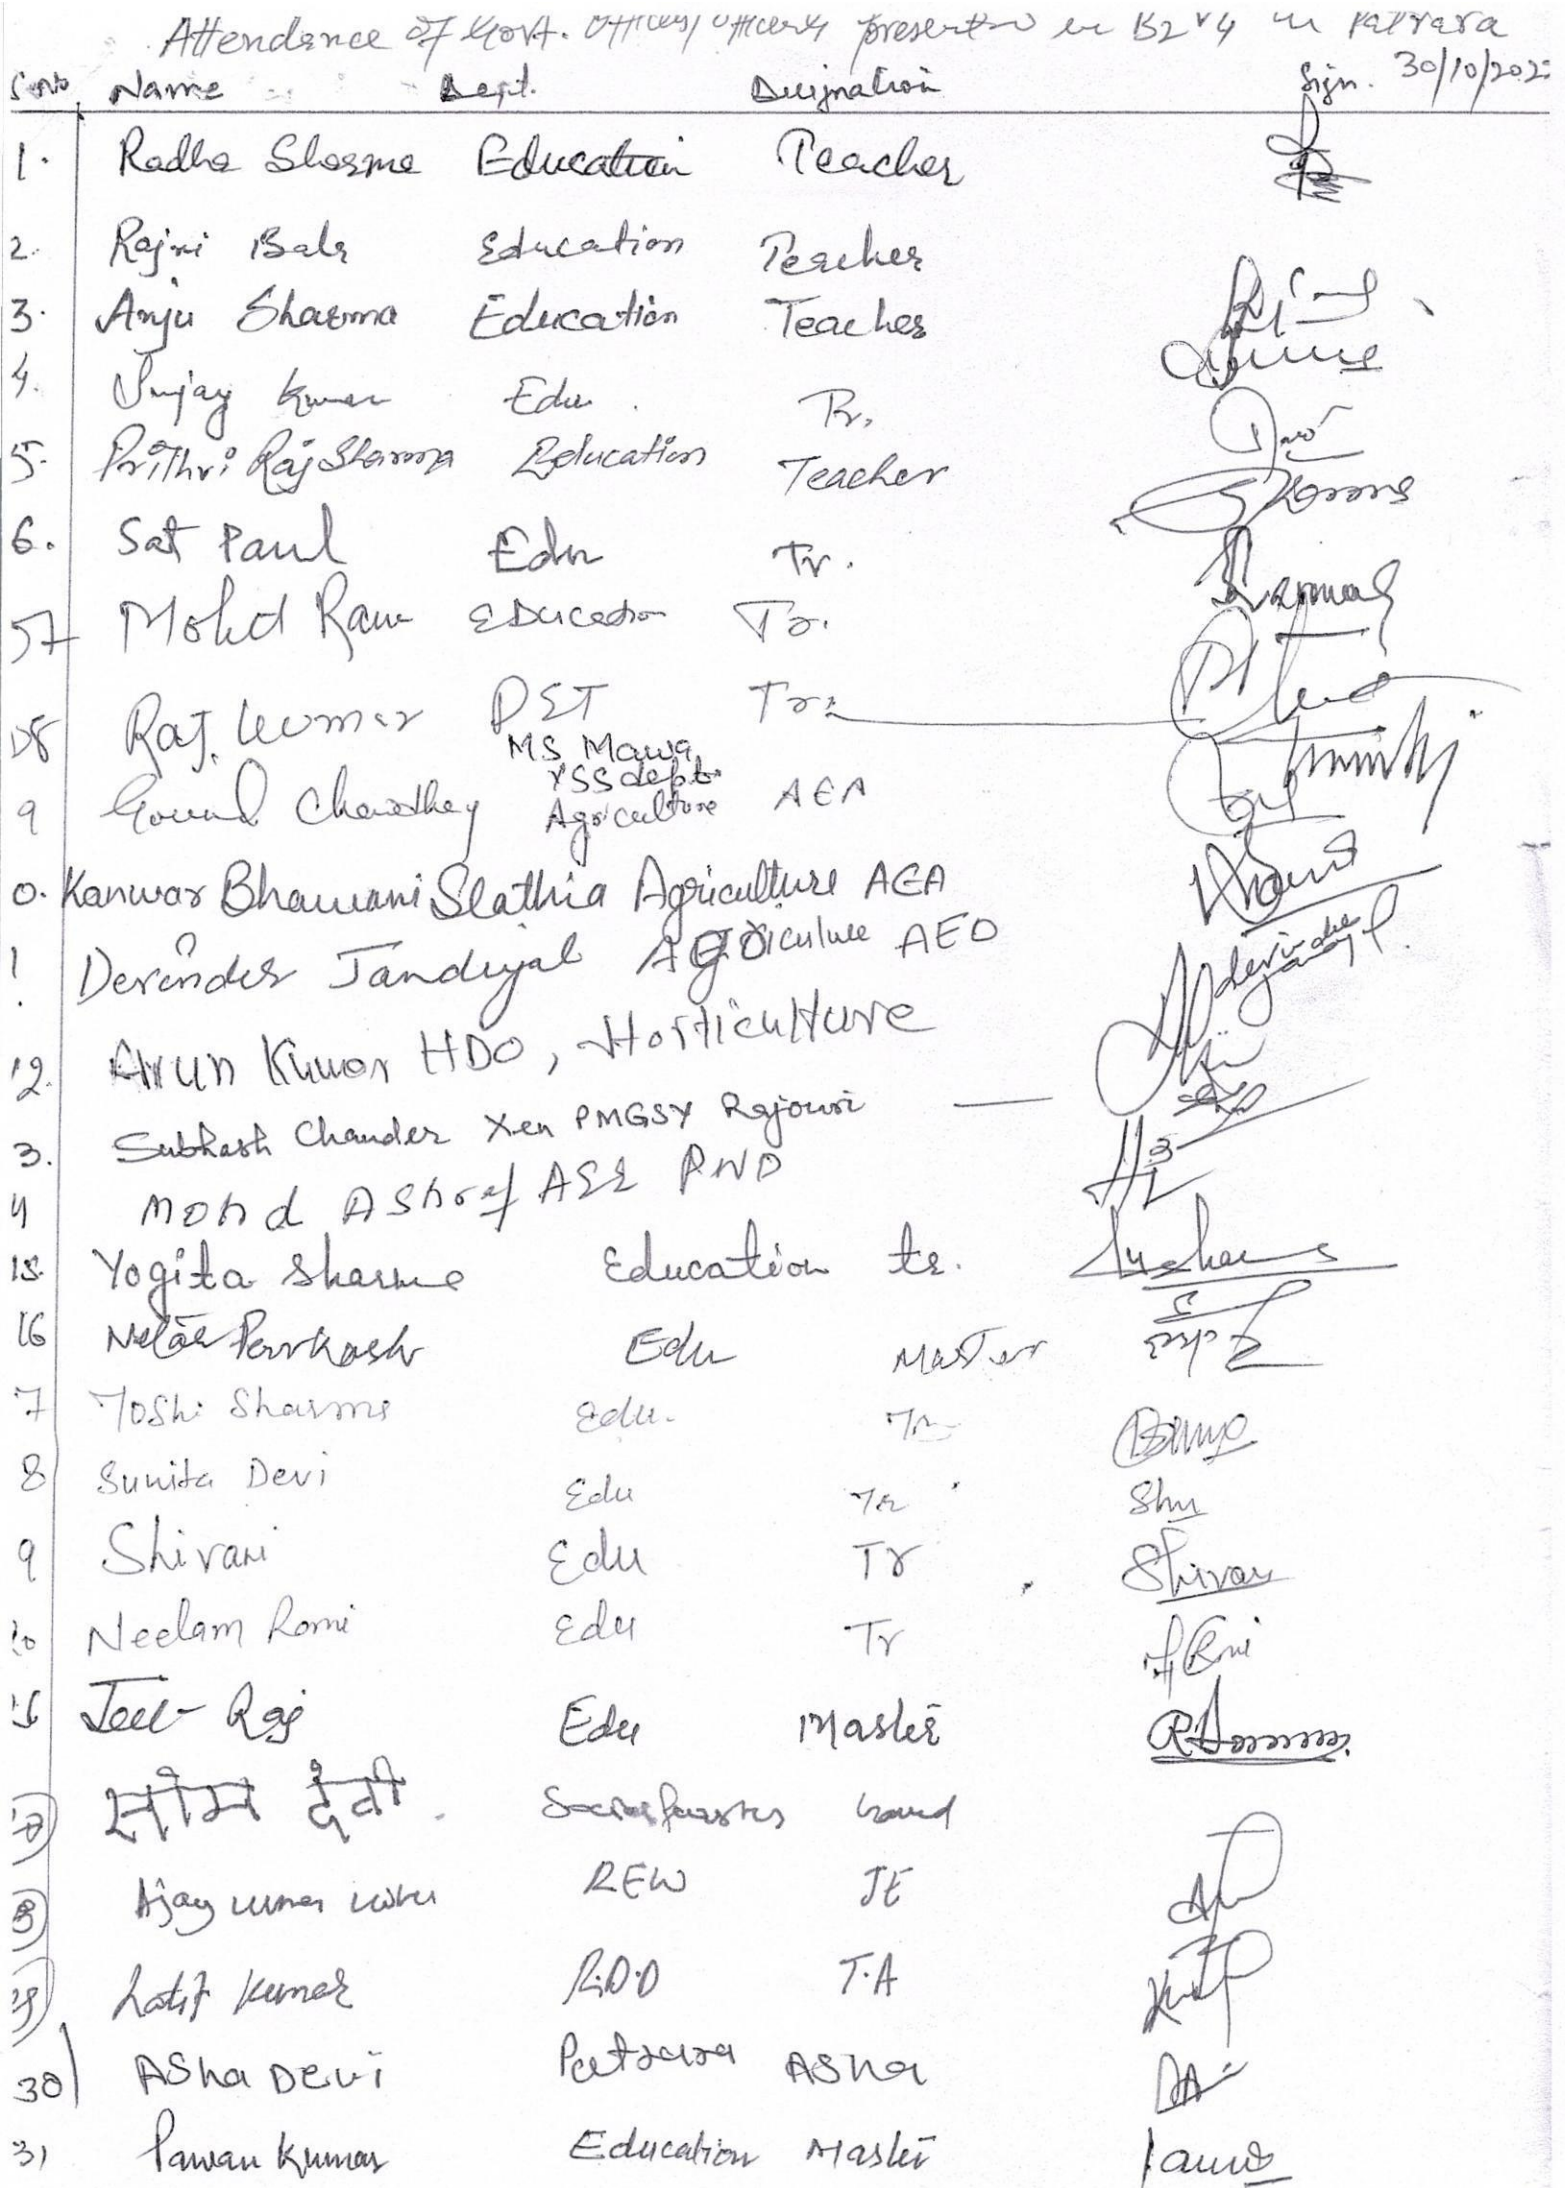 Attendance of Govt. Offices/officers presented in B2V4 in Patrara
S.No Name Deptt. Designation Sign. 30/10/202
1. Radha Sharma Education Teacher
2. Rajni Bala Education Teacher
3. Anju Sharma Education Teacher
4. Kumar Edu. Tr.
5. Prithvi Raj Sharma Education Teacher
6. Sat Paul Edu Tr.
Mohd Education Tr.
Raj Kumar PET Tr.
MS Mawa
YSS deptt.
9 Choudhary Agriculture AEA
0. Kanwar Bhawani Slathia Agriculture AEA
1. Devinder Jandyal Agriculture AEO
12. Arun Kumar HDO, Horticulture
3. Subhash Chander Xen PMGSY Rajouri
4 Mohd Ashraf AEE PWD
15. Yogita Sharma Education tr.
16 Parkash Edu Master
7 Toshi Sharma Edu. Tr
8 Sunita Devi Edu Tr Shu
9 Shivani Edu Tr Shivani
Neelam Romi Edu Tr
Jeet Raj Edu Master
देवी
Ajay Kumar REW JE
Kumar R.D.D T.A
30 Asha Devi Patrara Asha
31 Pawan Kumar Education Master